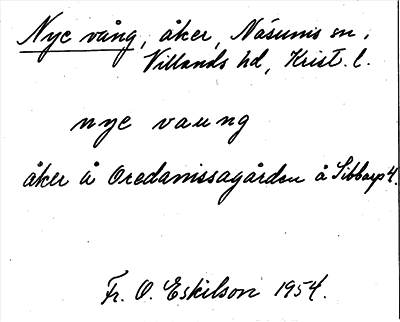 Nye vång, åker, Näsums sn,
Villands hd, Krist. l.
nye vaung
åker å Oredanissagården å Sibbarp 4.
Fr. O. Eskilson 1954.